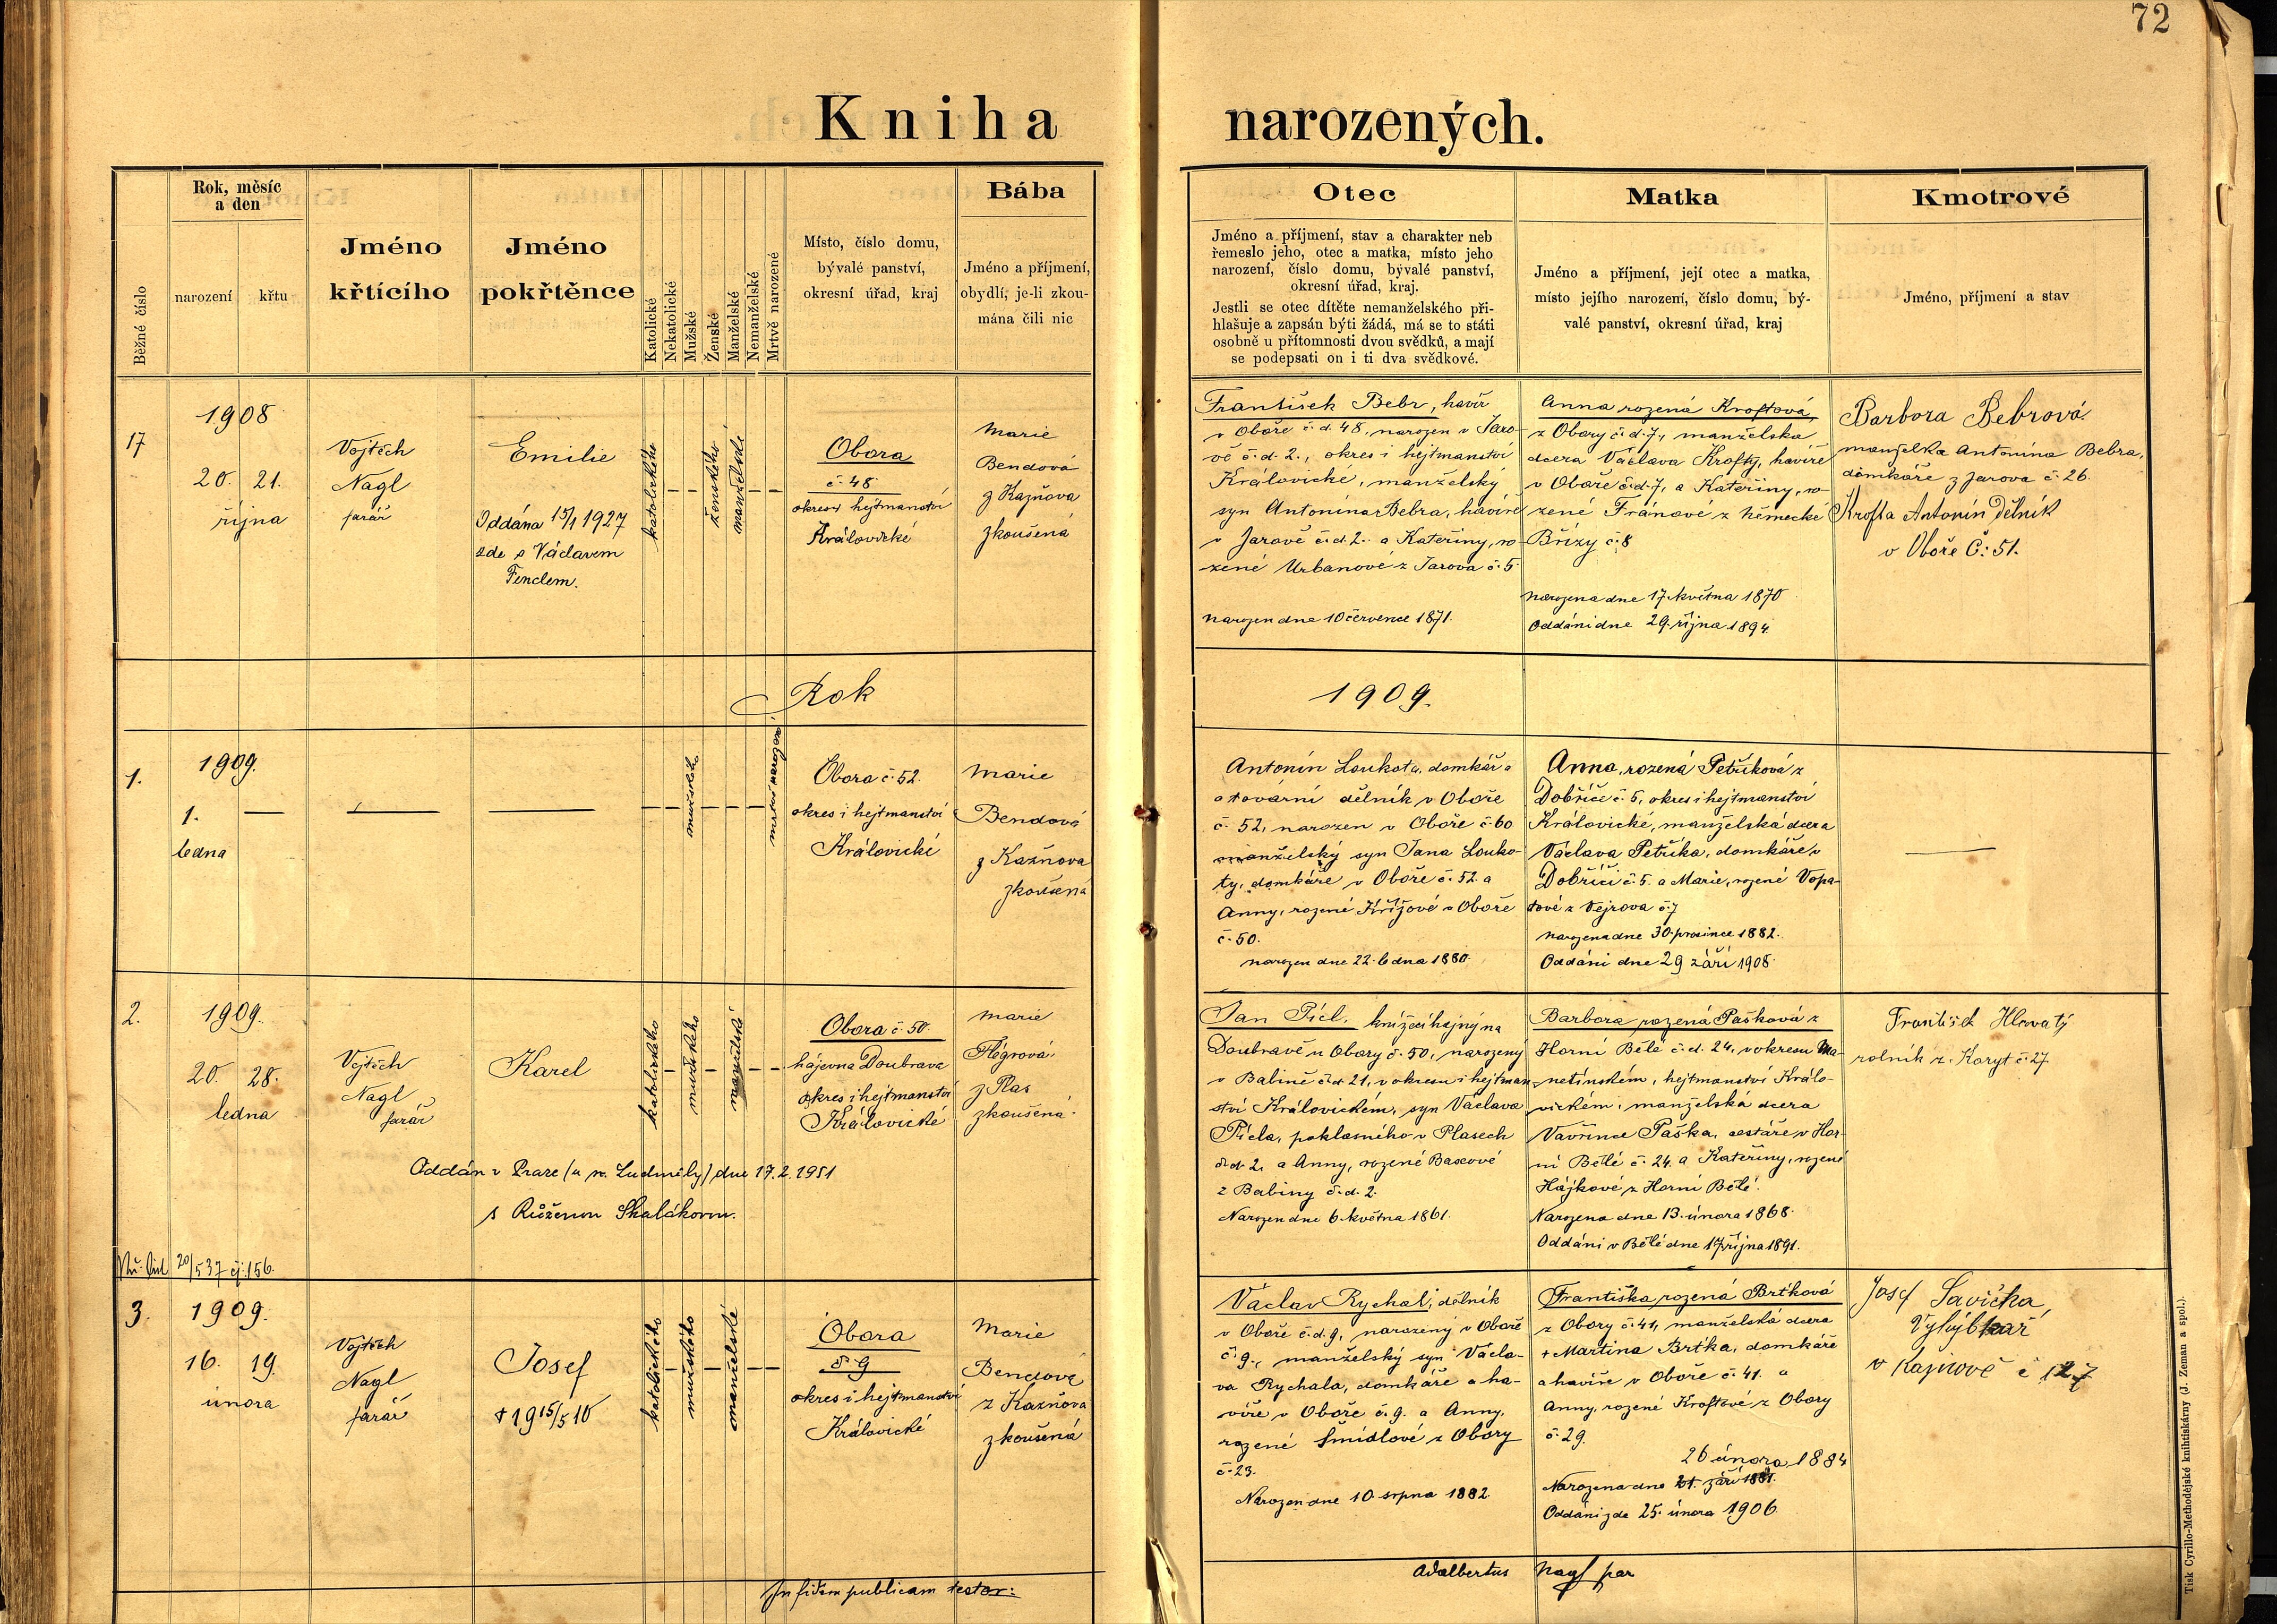 72
Kniha narozených.
Běžné číslo
Rok, měsíc
a den
narození
křtu
Jméno
křtícího
Jméno
pokřtěnce
Katolické
Nekatolické
Mužské
Ženské
Manželské
Nemanželské
Mrtvě narozené
Místo, číslo domu,
bývalé panství,
okresní úřad, kraj
Bába
Jméno a příjmení,
obydlí, je-li zkou-
mána čili nic
Otec
Jméno a příjmení, stav a charakter neb
řemeslo jeho, otec a matka, místo jeho
narození, číslo domu, bývalé panství,
okresní úřad, kraj.
Jestli se otec dítěte nemanželského při-
hlašuje a zapsán býti žádá, má se to státi
osobně u přítomnosti dvou svědků, a mají
se podepsati on i ti dva svědkové.
Matka
Jméno a příjmení, její otec a matka,
místo jejího narození, číslo domu, bý-
valé panství, okresní úřad, kraj
Kmotrové
Jméno, příjmení a stav
17
1908
20. 21.
října
Vojtěch
Nagl
farář
Emilie
Oddána 15/1 1927
zde s Václavem
Fenclem.
katolického
ženského
manželské
Obora
č. 48
okres i hejtmanství
Královické
Marie
Bendová
z Kazňova
zkoušená
František Bebr, havíř
v Oboře č. d. 48, narozen v Jaro-
vě č. d. 2., okres i hejtmanství
Královické, manželský
syn Antonína Bebra, havíře
v Jarově č. d. 2. a Kateřiny, ro-
zené Urbanové z Jarova č. 5
narozen dne 10 července 1871.
Anna rozená Kroftová,
z Obory č. d. 7., manželská
dcera Václava Krofty, havíře
v Oboře č. d. 7, a Kateřiny, ro-
zené Fránové z Německé
Břízy č. 8
narozena dne 17. května 1870
Oddáni dne 29. října 1894.
Barbora Bebrová
manželka Antonína Bebra,
domkáře z Jarova č. 26.
Krofta Antonín Dělník
v Oboře Č: 51.
Rok 1909.
1.
1909.
1.
ledna
mužského
mrtvě narozené
Obora č. 52.
okres i hejtmanství
Královické
Marie
Bendová
z Kazňova
zkoušená
Antonín Loukota, domkář a
a tovární dělník v Oboře
č. 52, narozen v Oboře č. 60
manželský syn Jana Louko-
ty, domkáře v Oboře č. 52. a
Anny, rozené Křížové z Oboře
č. 50.
narozen dne 22. ledna 1880.
Anna, rozená Petříková z
Dobříče č. 5, okres i hejtmanství
Královické, manželská dcera
Václava Petříka, domkáře v
Dobříči č. 5. a Marie, rozené Vopa-
tové z Vejrova č. 7
narozena dne 30. prosince 1882.
Oddáni dne 29 září 1908.
2.
1909.
20. 28.
ledna
Vojtěch
Nagl
farář
Karel
Oddán v Praze (u sv. Ludmily) dne 17. 2. 1951
s Růženou Skalákovou.
katolického
mužského
manželské
Obora č. 50.
hájovna Doubrava
okres i hejtmanství
Královické
Marie
Flégrová
z Plas
zkoušená
Jan Picl, knížecí hajný na
Doubravě u Obory č. 50, narozený
v Babině č. d. 21, v okresu i hejtman-
ství Královickém, syn Václava
Picla, poklasného v Plasech
č. d. 2, a Anny, rozené Baxové
z Babiny č. d. 2.
Narozen dne 6. května 1861.
Barbora rozená Pašková z
Horní Bělé č. d. 24, v okresu Ma-
netínském, hejtmanství Králo-
vickém, manželská dcera
Vavřince Paška, cestáře v Hor-
ní Bělé č. 24. a Kateřiny, rozené
Hájkové z Horní Bělé.
Narozena dne 13. února 1868.
Oddáni v Bělé dne 17 října 1891.
František Hrvatý
rolník z Koryt č. 27
20/5 37 čj: 156.
3.
1909.
16. 19.
února
Vojtěch
Nagl
farář
Josef
+ 1915/5 10
katolického
mužského
manželské
Obora
č. 9
okres i hejtmanství
Královické
Marie
Bendová
z Kazňova
zkoušená
Václav Rychal, dělník
v Oboře č. d. 9, narozený v Oboře
č. 9., manželský syn Václa-
va Rychala, domkáře a ha-
víře v Oboře č. 9. a Anny,
rozené Šmídlové z Obory
č. 23.
Narozen dne 10. srpna 1882.
Františka rozená Brtková
z Obory č. 41, manželská dcera
+ Martina Brtka, domkáře
a havíře v Oboře č. 41. a
Anny, rozené Kroftové z Obory
č. 29.
26 února 1884
Narozena dne 21. září 1881.
Oddáni zde 25. února 1906.
Josef Savička,
Výhybkář
v Kaznově č 127
In fidem publicam testor: Adalbertus Nagl par
Tisk Cyrillo-Methodějské knihtiskárny (J. Zeman a spol.).